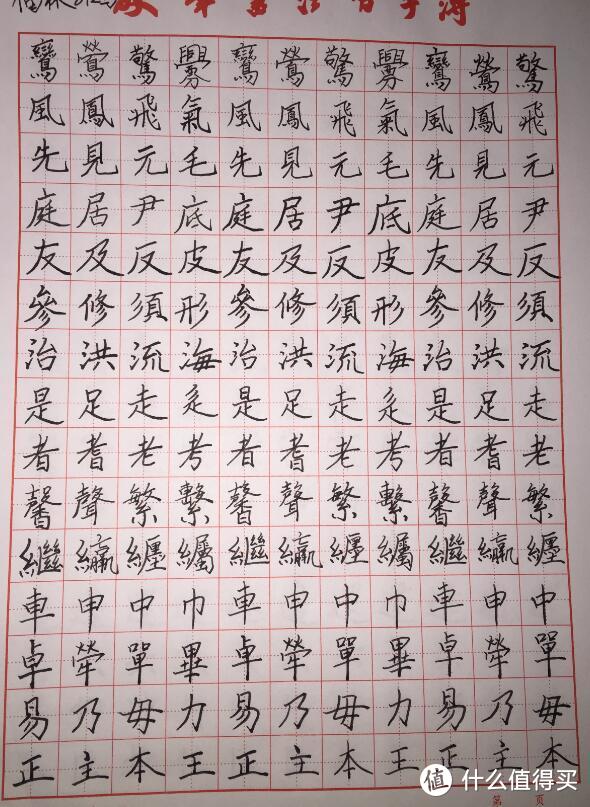 鸞鶯驚鸞鶯驚鸞鶯驚
風鳳飛氣風鳳飛氣風鳳飛
先見元毛先見元毛先見元
庭居尹底庭居尹底庭居尹
友及反皮友及反皮友及反
參修須形參修須形參修須
治洪流海治洪流海治洪流
是足走辵是足走辵是足走
者耆老考者耆老考者耆老
馨聲繁繫馨聲繁繫馨聲繁
繼纏繼纏繼纏
車申中巾車申中巾車申中
卓犖單畢卓犖單畢卓犖單
易乃毋力易乃毋力易乃毋
正主本王正主本王正主本
第 页
值 什么值得买